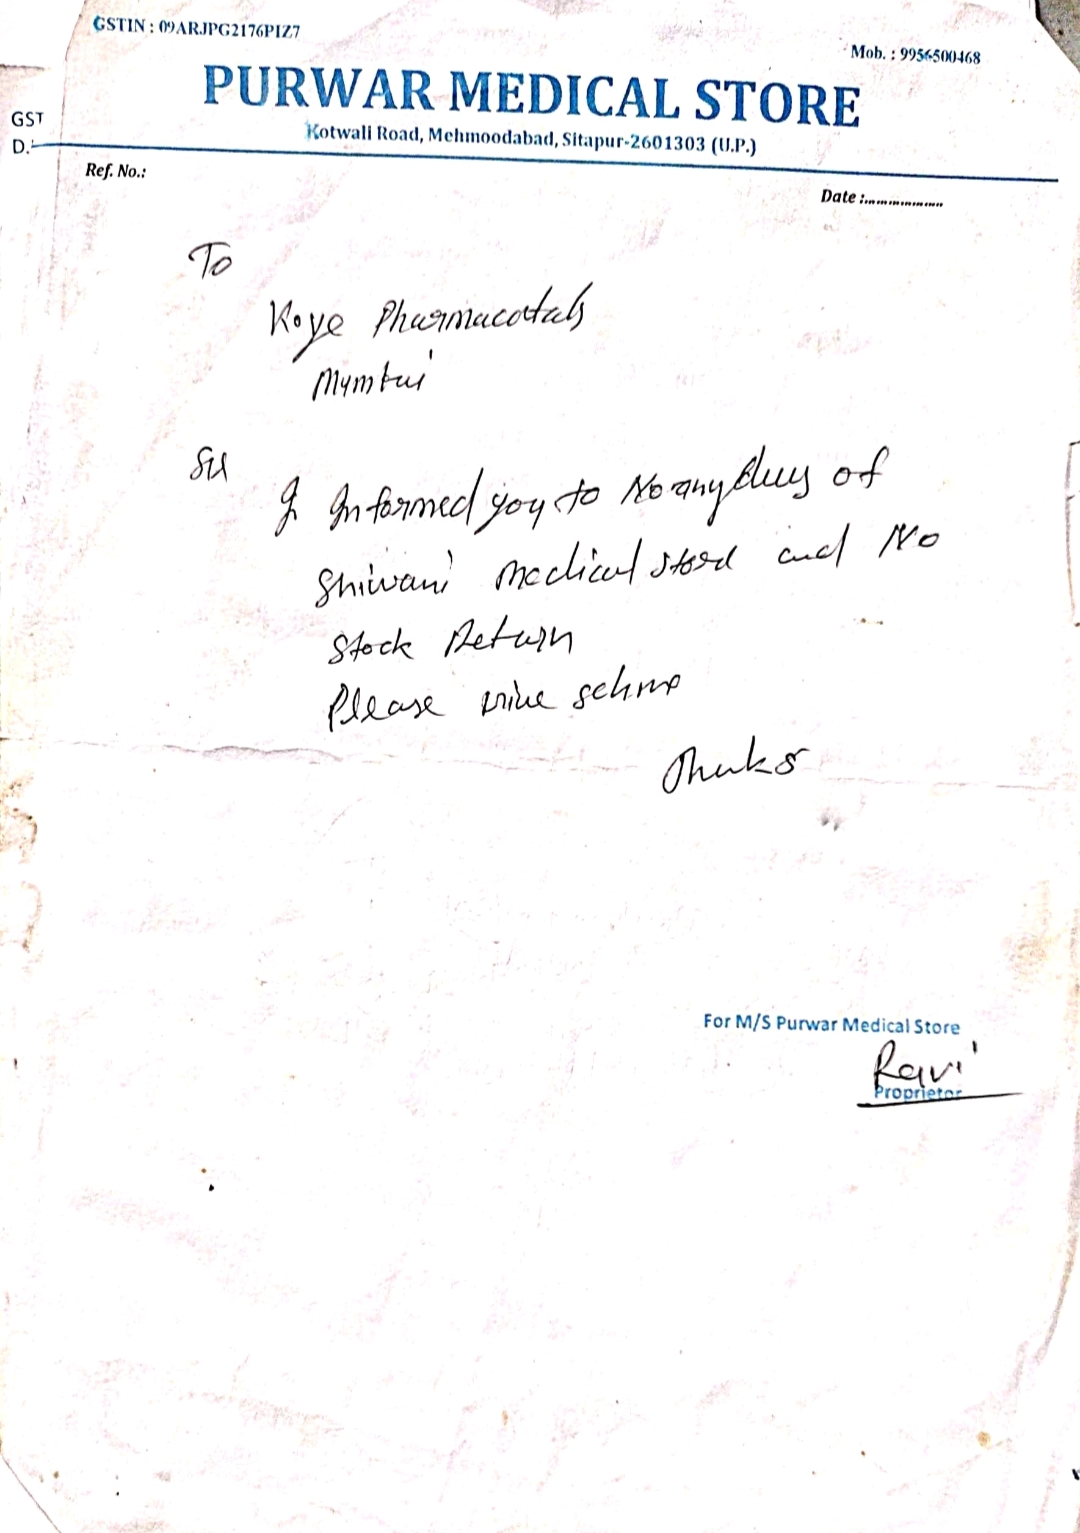 GSTIN : 09ARJPG2176P1Z7
Mob. : 9956500468
PURWAR MEDICAL STORE
Kotwali Road, Mehmoodabad, Sitapur-2601303 (U.P.)
GST
D.
Ref. No.:
Date :...................
To
Koye Pharmacotals
Mymbui
Sir
I Informed you to No any dues of
Shiwani Medical Store and No
Stock Return
Please schme
Thanks
For M/S Purwar Medical Store
Ravi
Proprietor